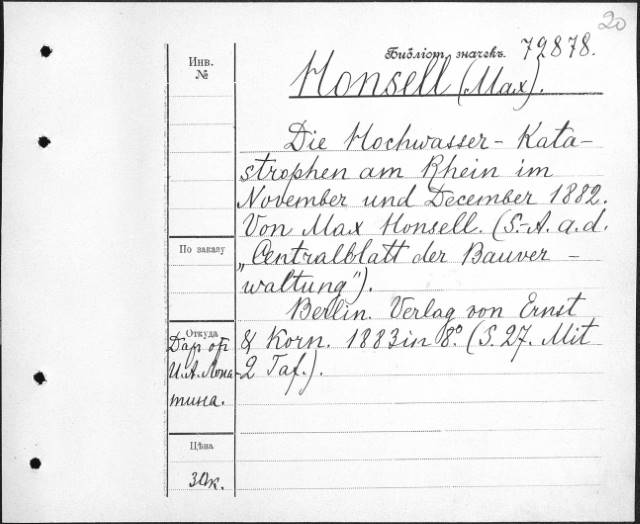 20
Инв.
№
Библіот. значекъ. 72878.
Honsell (Max).
Die Hochwasser-Kata-
strophen am Rhein im
November und December 1882.
Von Max Honsell. (S.-A. a. d.
„Centralblatt der Bauver-
waltung").
Berlin. Verlag von Ernst
& Korn. 1883 in 8°. (S. 27. Mit
2 Taf.).
По заказу
Откуда
Даръ
И. А. Лопа-
тина.
Цѣна
30к.